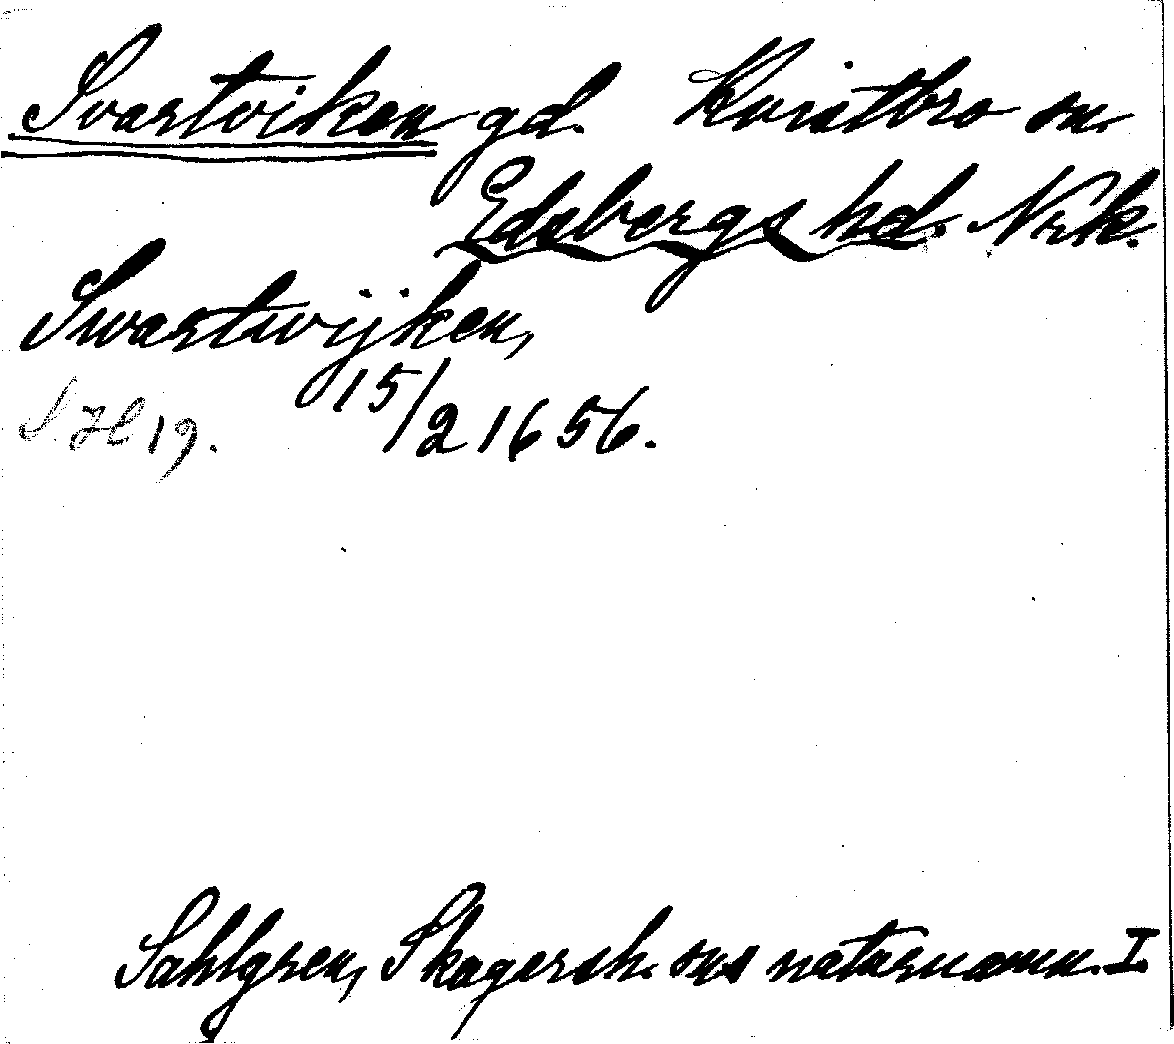 Svartviken gd. Kvistbro sn.
Edsbergs hd. Nrk.
Swartwijken,
15/2 1656.
S. 19.
Sahlgren, Skagersh. sns naturnamn. I.